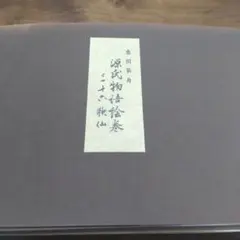 源氏物語絵巻
三十六歌仙